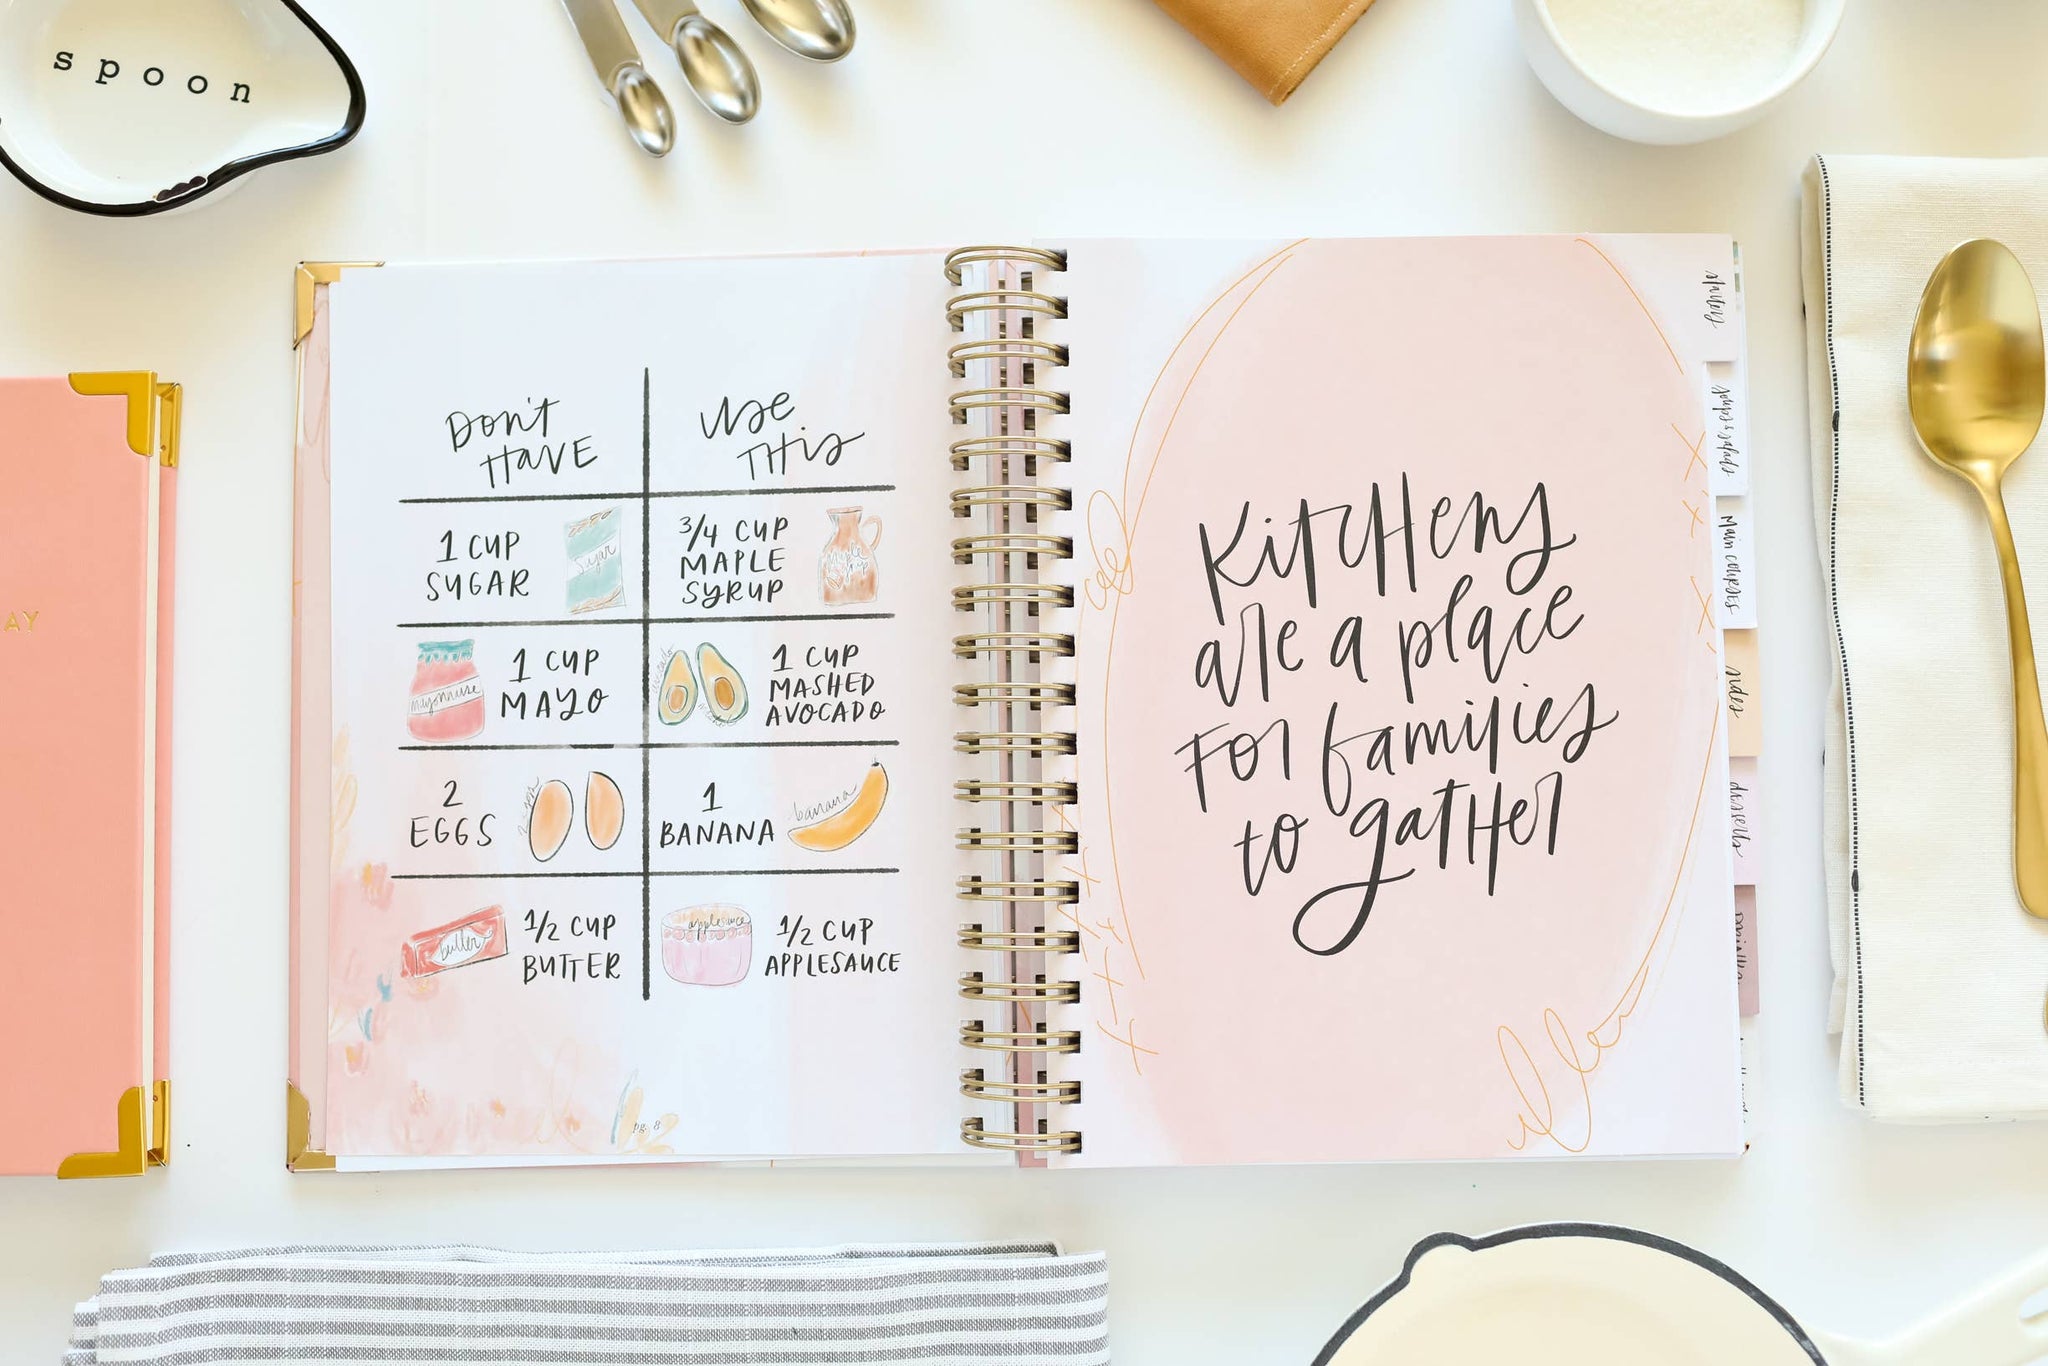 spoon
AY
Don't
Have
Use
This
1 CUP
SUGAR
Sugar
3/4 CUP
MAPLE
SYRUP
maple
syrup
mayonnaise
1 CUP
MAYO
avocado
1 CUP
MASHED
AVOCADO
2
EGGS
1
BANANA
banana
butter
1/2 CUP
BUTTER
applesauce
1/2 CUP
APPLESAUCE
pg. 8
Kitchens
are a place
For families
to gather
starters
soups & salads
Main courses
sides
desserts
Drinks